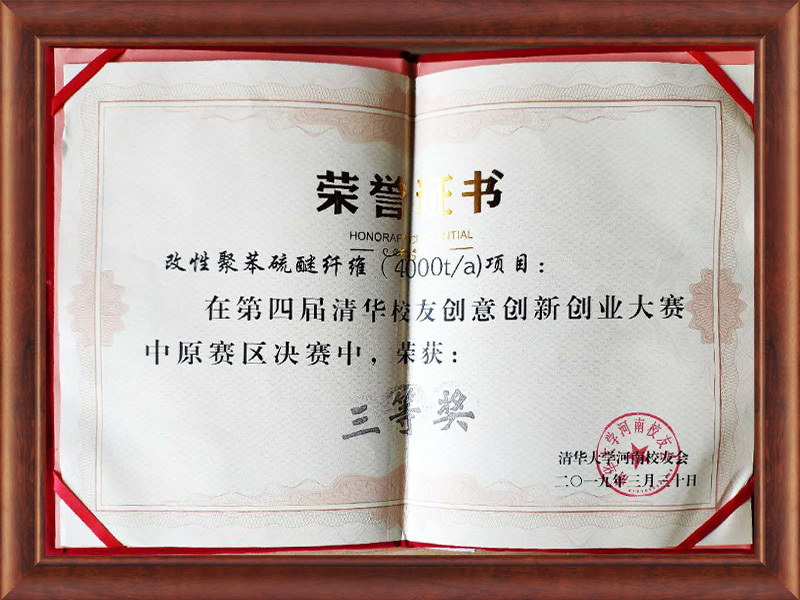 荣誉证书
HONORARY CREDENTIAL
改性聚苯硫醚纤维(4000t/a)项目：
在第四届清华校友创意创新创业大赛
中原赛区决赛中，荣获：
三等奖
清华大学河南校友会
二〇一九年三月三十日
清华大学河南校友会